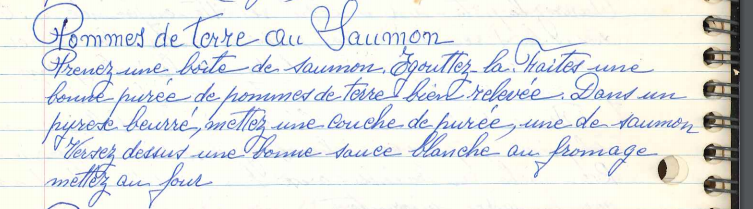 Pommes de terre au Saumon
Prenez une boîte de saumon. Egouttez la. Faites une
bonne purée de pommes de terre bien relevée. Dans un
pyrese beurré, mettez une couche de purée, une de saumon
Versez dessus une bonne sauce blanche au fromage
mettez au four